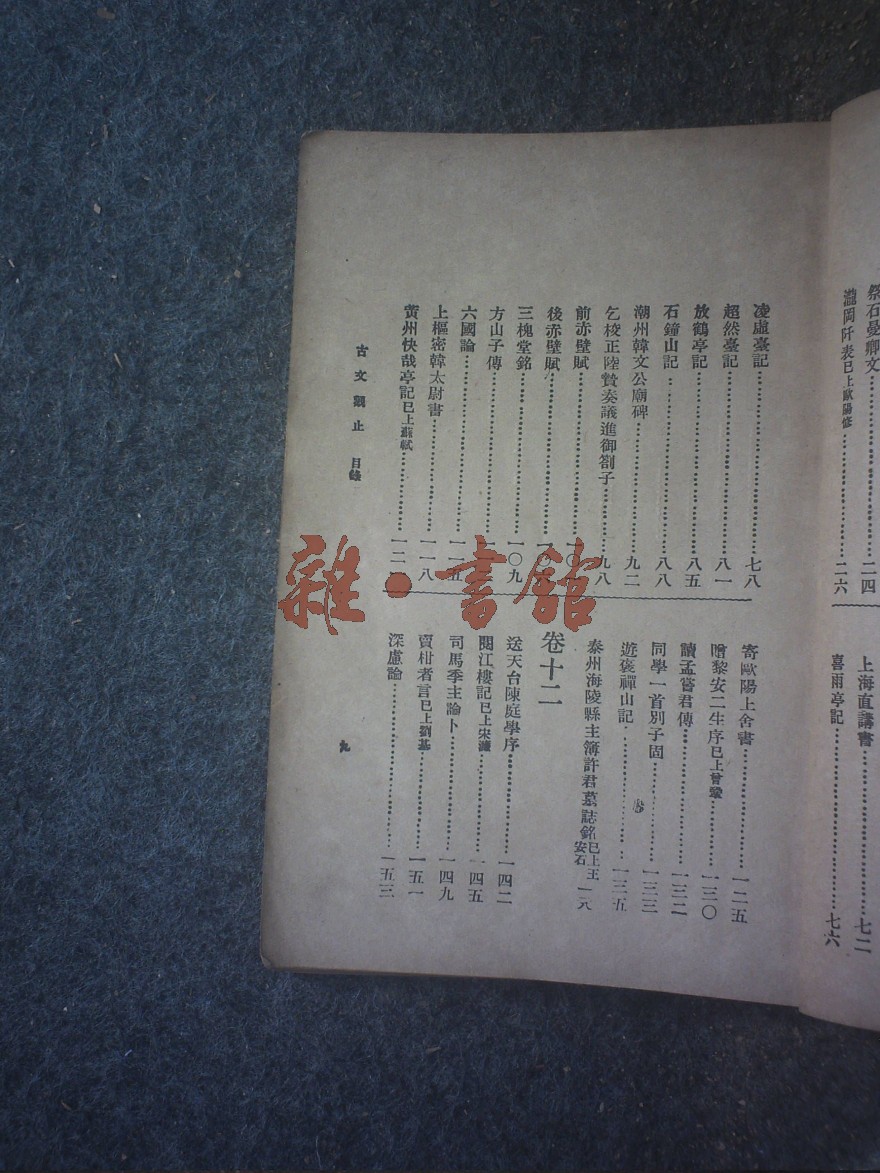 祭石曼卿文……二四
瀧岡阡表已上歐陽修……二六
上海直講書……七二
喜雨亭記……七六
凌虛臺記……七八
超然臺記……八一
放鶴亭記……八五
石鐘山記……八八
潮州韓文公廟碑……九二
乞校正陸贄奏議進御劄子……九八
前赤壁賦……
後赤壁賦……
三槐堂銘……一〇九
方山子傳……
六國論……一一五
上樞密韓太尉書……一一八
黃州快哉亭記已上蘇軾……一二一
寄歐陽上舍書……一二五
贈黎安二生序已上曾鞏……一三〇
讀孟嘗君傳……一三二
同學一首別子固……一三三
遊褒禪山記……一三五
泰州海陵縣主簿許君墓誌銘已上王安石
卷十二
送天台陳庭學序……一四二
閱江樓記已上宋濂……一四五
司馬季主論卜……一四九
賣柑者言已上劉基……一五一
深慮論……一五三
古文觀止 目錄
九
雜·書館